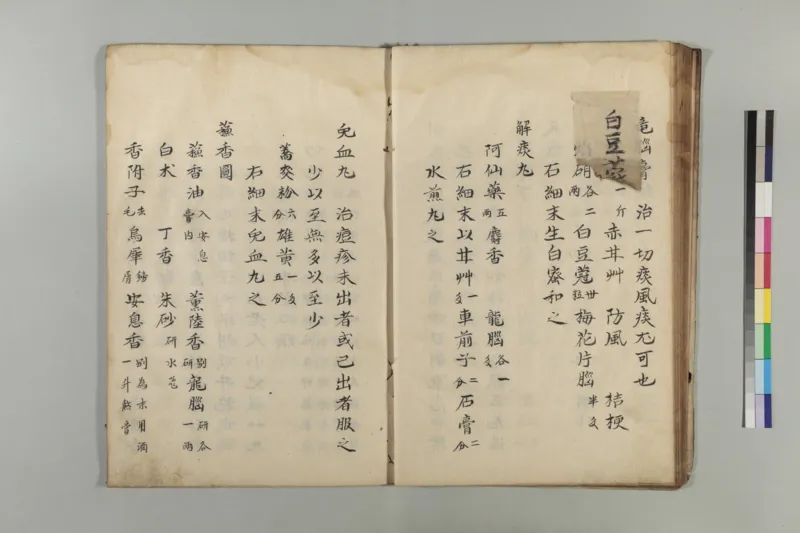 龍腦膏 治一切痰風痰尤可也
一斤 赤芽艸 防風 桔梗
硝各二两 白豆蔻廿粒 梅花片腦半戔
白豆蔻
右細末生白蜜和之
解痰丸
阿仙藥五両 麝香 龍腦各一戔
右細末以甘艸一戔 車前子二分 石膏二分
水煎丸之
兔血丸 治痘疹未出者或已出者服之
少以至無多以至少
蕎麥粉六分 雄黄一戔五分
右細末兔血丸之
蘇香圓
蘇香油入安息膏内 薫陸香別研 龍腦研各一両
白朮 丁香 朱砂研水飛
香附子去毛 烏犀鎊屑 安息香別為末用酒一升熬膏